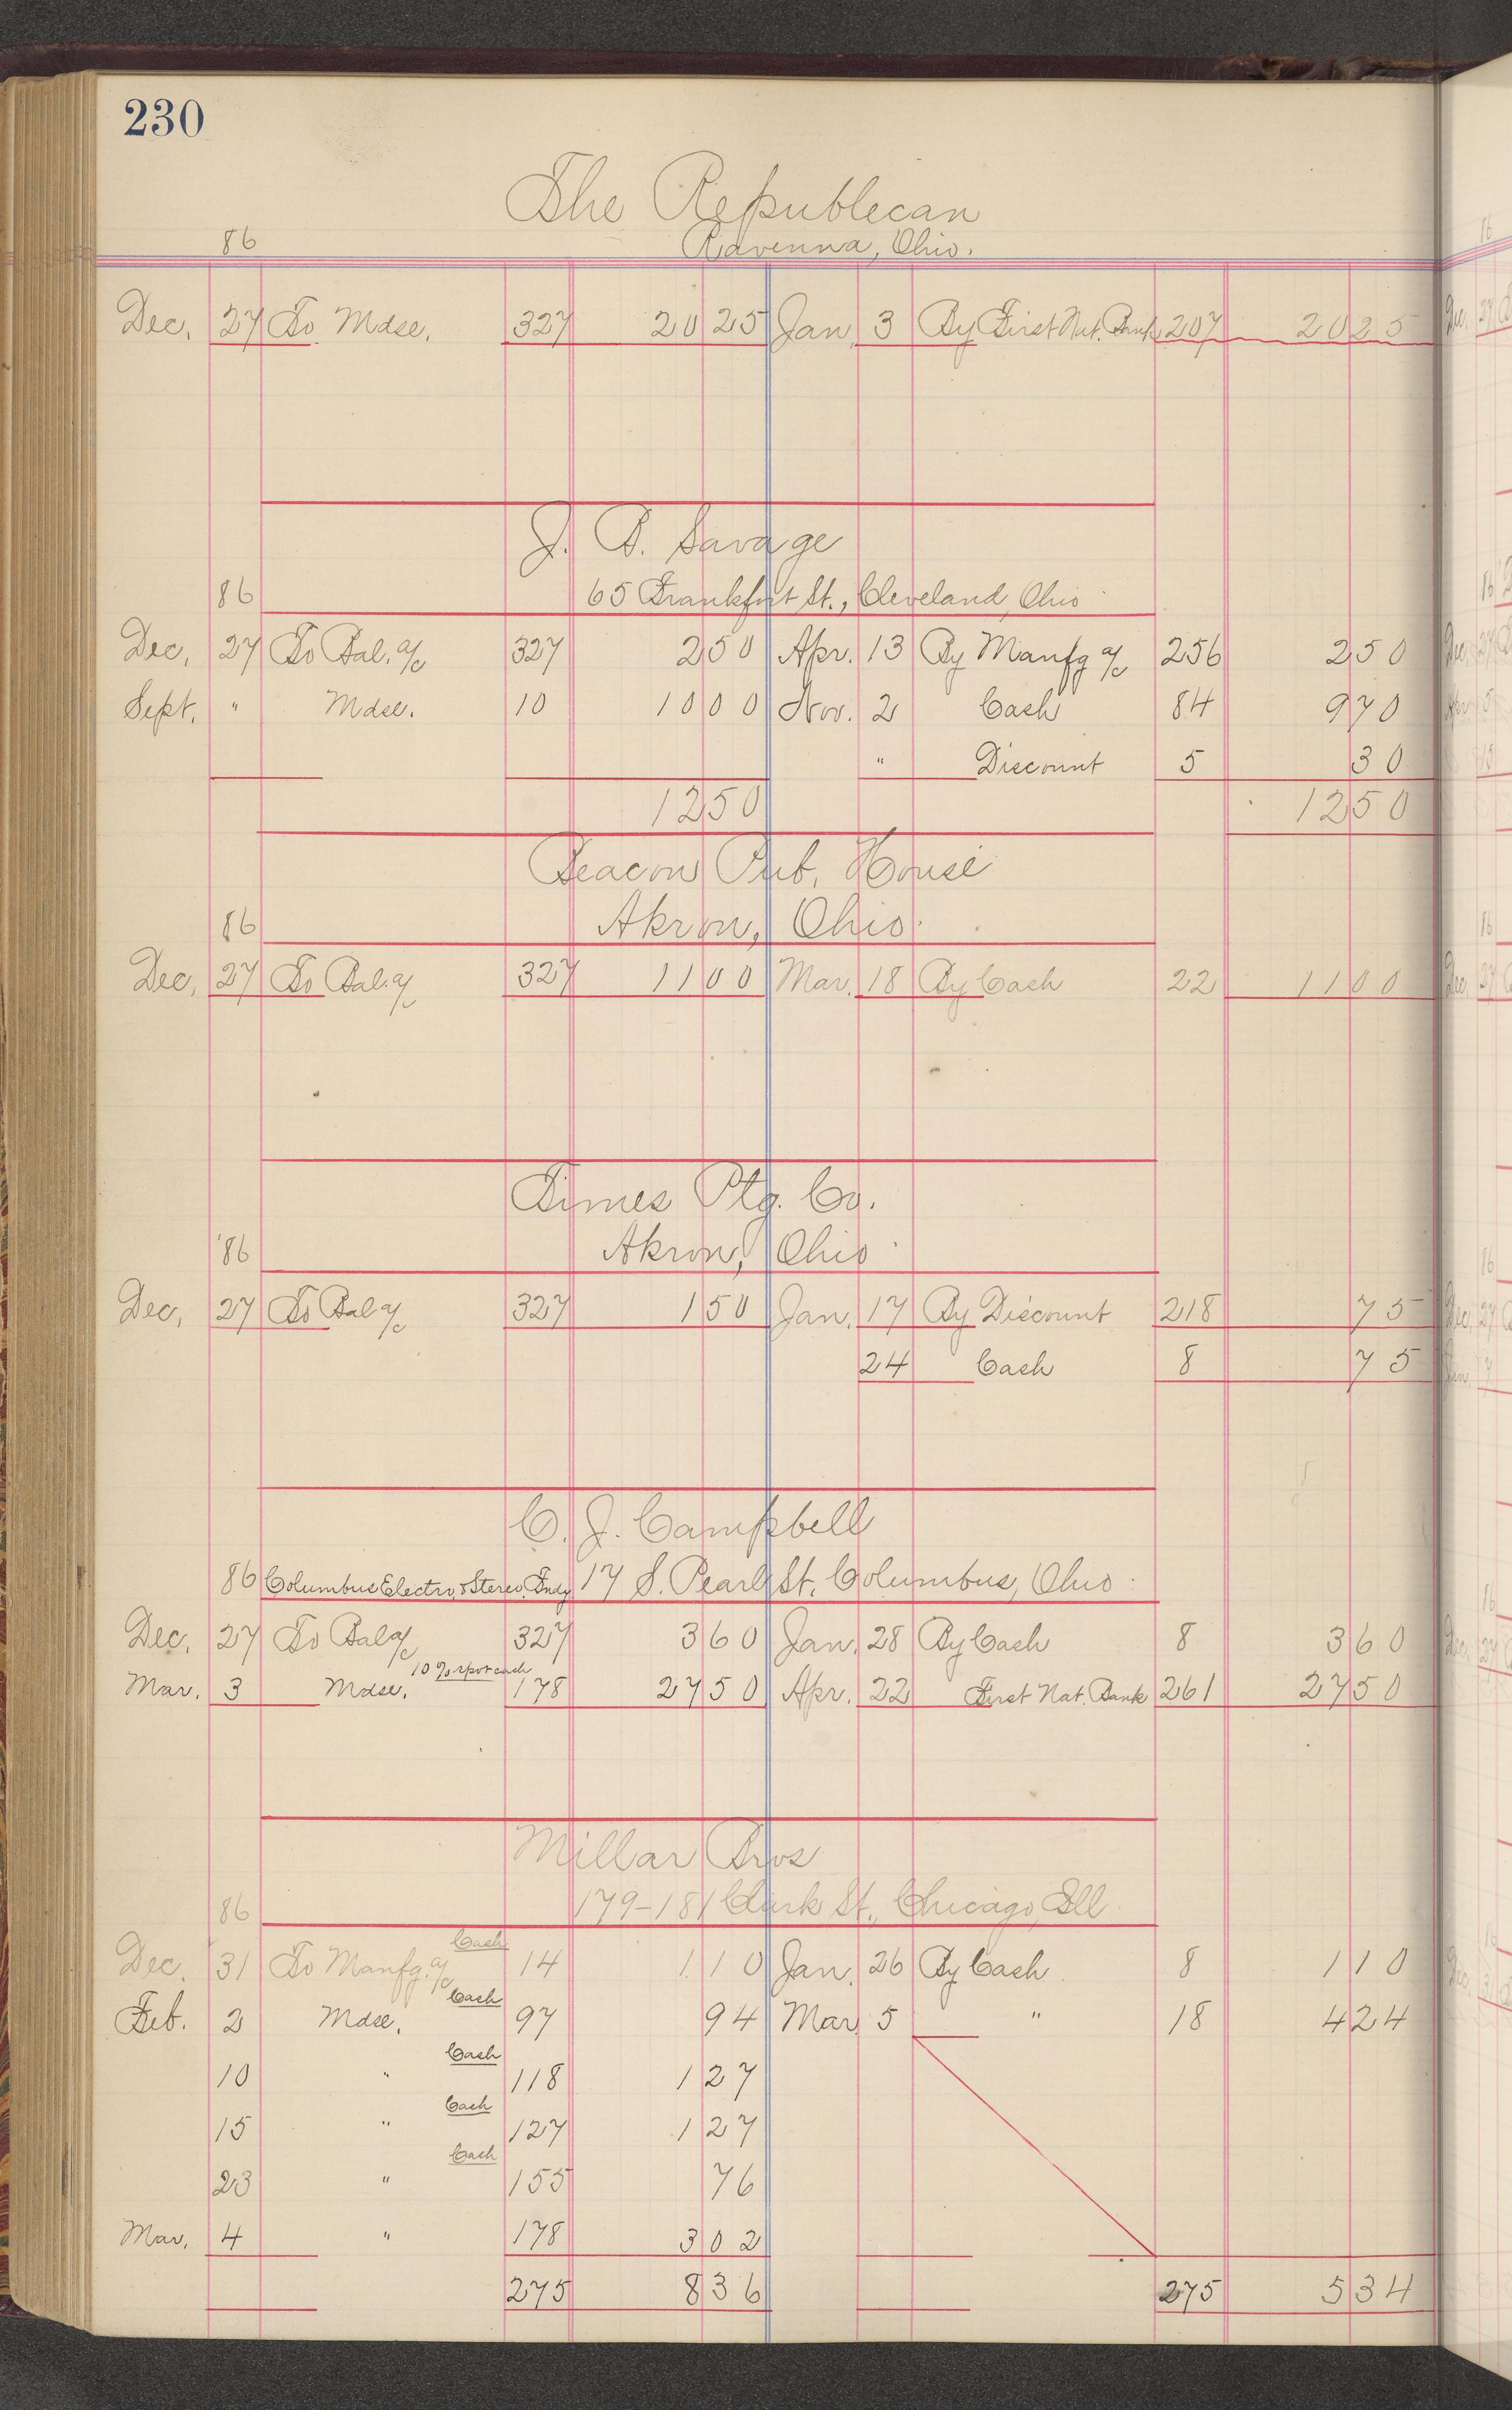 230
The Republican
86 Ravenna, Ohio.
Dec. 27 To Mdse. 327 20 25 Jan. 3 By First Nat. Bank 207 20 25
J. B. Savage
86 65 Frankfort St., Cleveland, Ohio
Dec. 27 To Bal. a/c 327 2 50 Apr. 13 By Manfg a/c 256 2 50
Sept. " Mdse. 10 10 00 Nov. 2 Cash 84 9 70
" Discount 5 30
12 50 12 50
Beacon Pub. House
86 Akron, Ohio.
Dec. 27 To Bal. a/c 327 11 00 Mar. 18 By Cash 22 11 00
Times Ptg. Co.
'86 Akron, Ohio
Dec. 27 To Bal a/c 327 1 50 Jan. 17 By Discount 218 75
24 Cash 8 75
C. J. Campbell
86 Columbus Electro & Stereo. Fndy 17 S. Pearl St. Columbus, Ohio
Dec. 27 To Bal a/c 327 3 60 Jan. 28 By Cash 8 3 60
Mar. 3 Mdse. 10% spot cash 178 27 50 Apr. 22 First Nat. Bank 261 27 50
Millar Bros
86 179-181 Clark St., Chicago, Ill
Dec. 31 To Manfg. a/c Cash 14 1 10 Jan. 26 By Cash 8 1 10
Feb. 2 Mdse. Cash 97 94 Mar 5 " 18 4 24
10 " Cash 118 1 27
15 " Cash 127 1 27
23 " Cash 155 76
Mar. 4 " 178 3 02
275 8 36 275 5 34